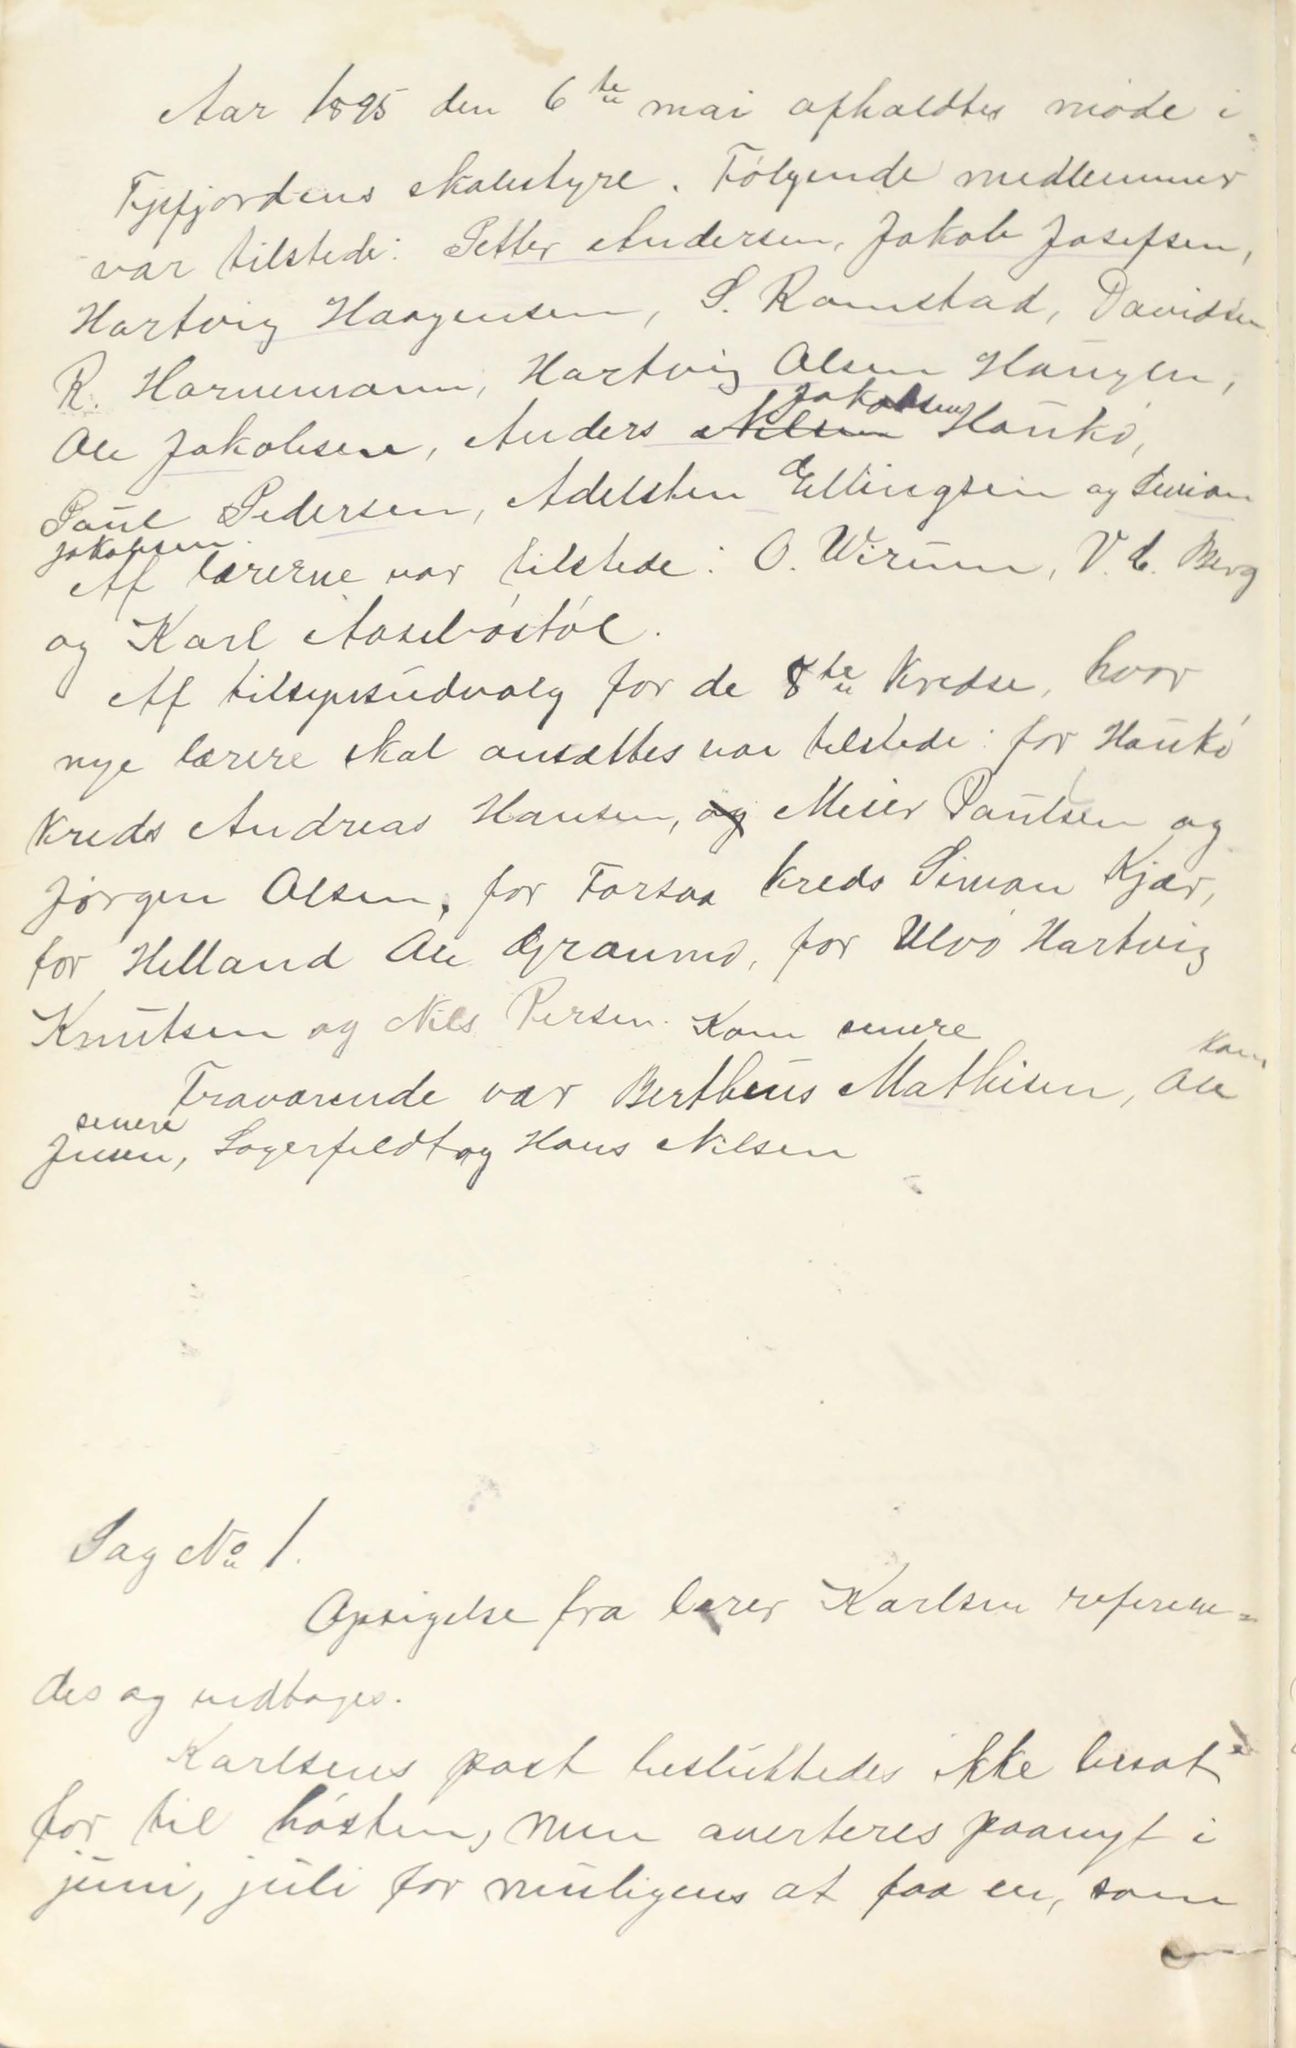 Aar 1895 den 6te mai afholdtes møde i
Tysfjordens skolestyre. Følgende medlemmer
var tilstede: Petter Andersen, Jakob Josefsen,
Hartvig Haagensen, S. Ramstad, Davidsen
R. Hornemann, Hartvig Olsen Haugen,
Jakobsen
Ole Jakobsen, Anders Nilsen Haukø,
Paul Pedersen, Adelsten Ellingsen og Simon
Jakobsen.
Af lærerne var tilstede: O. Wirum, V. C. Berg
og Karl Aasebøstøl.
Af tilsynsudvalg for de 8te kredse, hvor
nye lærere skal ansættes var tilstede: for Haukø
kreds Andreas Hansen, og Meier Paulsen og
Jørgen Olsen, for Forsaa kreds Simon Kjær,
for Helland Ole Graums, for Ulvø Hartvig
Knutsen og Nils Persen. Kom senere
kom
Fraværende var Bertheus Mathisen, Ole
senere
Jensen, Lagerfeldt og Hans Nilsen
Sag No 1.
Opsigelse fra lærer Karlsen referere-
des og vedtoges.
Karlsens post besluttedes ikke besat
før til høsten, men averteres paanyt i
juni, juli for muligens at faa en, som